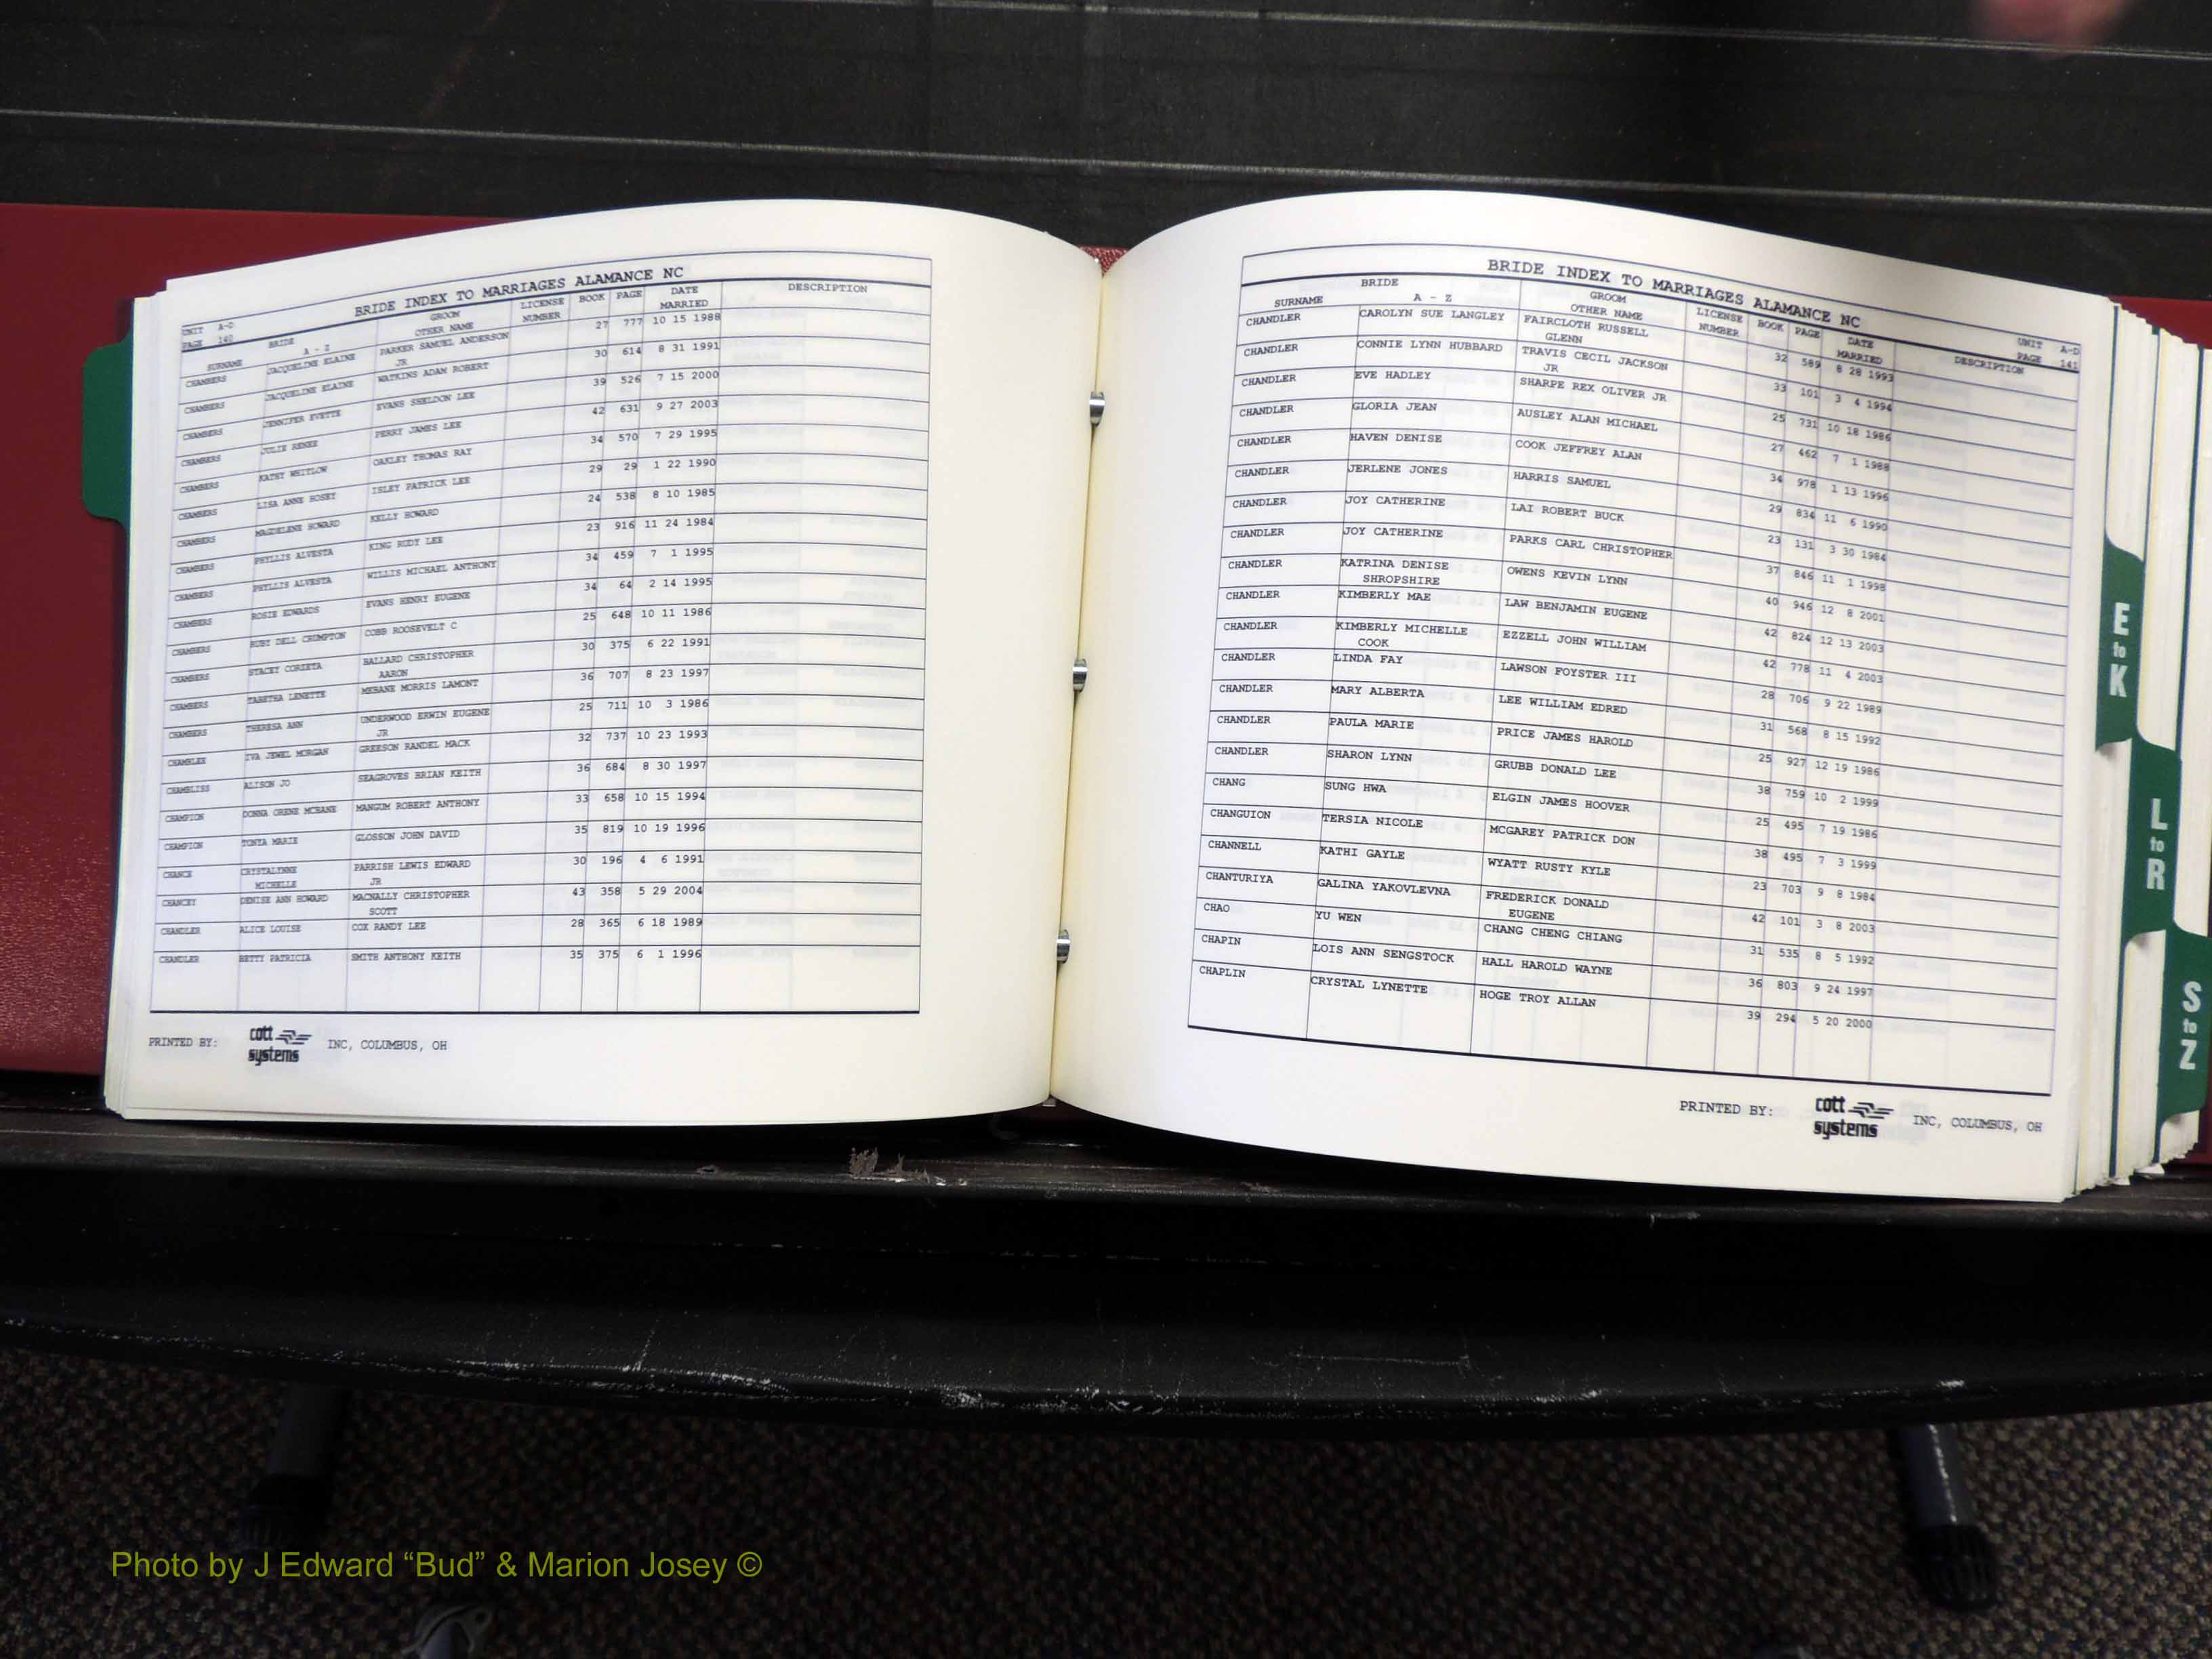 BRIDE INDEX TO MARRIAGES ALAMANCE NC
UNIT A-D
PAGE 140
BRIDE GROOM LICENSE BOOK PAGE DATE DESCRIPTION
SURNAME A - Z OTHER NAME NUMBER MARRIED
CHAMBERS JACQUELINE ELAINE PARKER SAMUEL ANDERSON 27 777 10 15 1988
JR
CHAMBERS JACQUELINE ELAINE WATKINS ADAM ROBERT 30 614 8 31 1991
CHAMBERS JENNIFER EVETTE EVANS SHELDON LEE 39 526 7 15 2000
CHAMBERS JULIE RENEE PERRY JAMES LEE 42 631 9 27 2003
CHAMBERS KATHY WHITLOW OAKLEY THOMAS RAY 34 570 7 29 1995
CHAMBERS LISA ANNE HOSEY ISLEY PATRICK LEE 29 29 1 22 1990
CHAMBERS MAGDELENE HOWARD KELLY HOWARD 24 538 8 10 1985
CHAMBERS PHYLLIS ALVESTA KING RUDY LEE 23 916 11 24 1984
CHAMBERS PHYLLIS ALVESTA WILLIS MICHAEL ANTHONY 34 459 7 1 1995
CHAMBERS ROSIE EDWARDS EVANS HENRY EUGENE 34 64 2 14 1995
CHAMBERS RUBY DELL CRUMPTON COBB ROOSEVELT C 25 648 10 11 1986
CHAMBERS STACEY CORZETA BALLARD CHRISTOPHER 30 375 6 22 1991
AARON
CHAMBERS TABETHA LENETTE MEBANE MORRIS LAMONT 36 707 8 23 1997
CHAMBERS THERESA ANN UNDERWOOD ERWIN EUGENE 25 711 10 3 1986
JR
CHAMBLEE IVA JEWEL MORGAN GREESON RANDEL MACK 32 737 10 23 1993
CHAMBLISS ALISON JO SEAGROVES BRIAN KEITH 36 684 8 30 1997
CHAMPION DONNA GRENE MCBANE MANGUM ROBERT ANTHONY 33 658 10 15 1994
CHAMPION TONYA MARIE GLOSSON JOHN DAVID 35 819 10 19 1996
CHANCE CRYSTALYNNE PARRISH LEWIS EDWARD 30 196 4 6 1991
MICHELLE JR
CHANCEY DENISE ANN HOWARD MACNALLY CHRISTOPHER 43 358 5 29 2004
SCOTT
CHANDLER ALICE LOUISE COX RANDY LEE 28 365 6 18 1989
CHANDLER BETTY PATRICIA SMITH ANTHONY KEITH 35 375 6 1 1996
PRINTED BY: cott systems INC, COLUMBUS, OH
BRIDE INDEX TO MARRIAGES ALAMANCE NC
UNIT A-D
PAGE 141
BRIDE GROOM LICENSE BOOK PAGE DATE DESCRIPTION
SURNAME A - Z OTHER NAME NUMBER MARRIED
CHANDLER CAROLYN SUE LANGLEY FAIRCLOTH RUSSELL 32 589 8 28 1993
GLENN
CHANDLER CONNIE LYNN HUBBARD TRAVIS CECIL JACKSON 33 101 3 4 1994
JR
CHANDLER EVE HADLEY SHARPE REX OLIVER JR 25 731 10 18 1986
CHANDLER GLORIA JEAN AUSLEY ALAN MICHAEL 27 462 7 1 1988
CHANDLER HAVEN DENISE COOK JEFFREY ALAN 34 978 1 13 1996
CHANDLER JERLENE JONES HARRIS SAMUEL 29 834 11 6 1990
CHANDLER JOY CATHERINE LAI ROBERT BUCK 23 131 3 30 1984
CHANDLER JOY CATHERINE PARKS CARL CHRISTOPHER 37 846 11 1 1998
CHANDLER KATRINA DENISE OWENS KEVIN LYNN 40 946 12 8 2001
SHROPSHIRE
CHANDLER KIMBERLY MAE LAW BENJAMIN EUGENE 42 824 12 13 2003
CHANDLER KIMBERLY MICHELLE EZZELL JOHN WILLIAM 42 778 11 4 2003
COOK
CHANDLER LINDA FAY LAWSON FOYSTER III 28 706 9 22 1989
CHANDLER MARY ALBERTA LEE WILLIAM EDRED 31 568 8 15 1992
CHANDLER PAULA MARIE PRICE JAMES HAROLD 25 927 12 19 1986
CHANDLER SHARON LYNN GRUBB DONALD LEE 38 759 10 2 1999
CHANG SUNG HWA ELGIN JAMES HOOVER 25 495 7 19 1986
CHANGUION TERSIA NICOLE MCGAREY PATRICK DON 38 495 7 3 1999
CHANNELL KATHI GAYLE WYATT RUSTY KYLE 23 703 9 8 1984
CHANTURIYA GALINA YAKOVLEVNA FREDERICK DONALD 42 101 3 8 2003
EUGENE
CHAO YU WEN CHANG CHENG CHIANG 31 535 8 5 1992
CHAPIN LOIS ANN SENGSTOCK HALL HAROLD WAYNE 36 803 9 24 1997
CHAPLIN CRYSTAL LYNETTE HOGE TROY ALLAN 39 294 5 20 2000
PRINTED BY: cott systems INC, COLUMBUS, OH
E to K
L to R
S to Z
Photo by J Edward “Bud” & Marion Josey ©